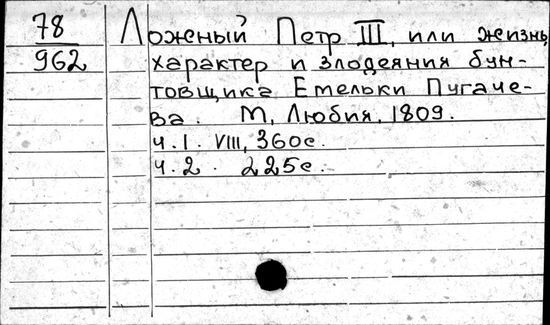 78
962
Ложный Петр III, или жизнь,
характер и злодеяния бун-
товщика Емельки Пугаче-
ва. М, Любия, 1809.
ч.1. VIII, 360с.
ч.2. 225с.